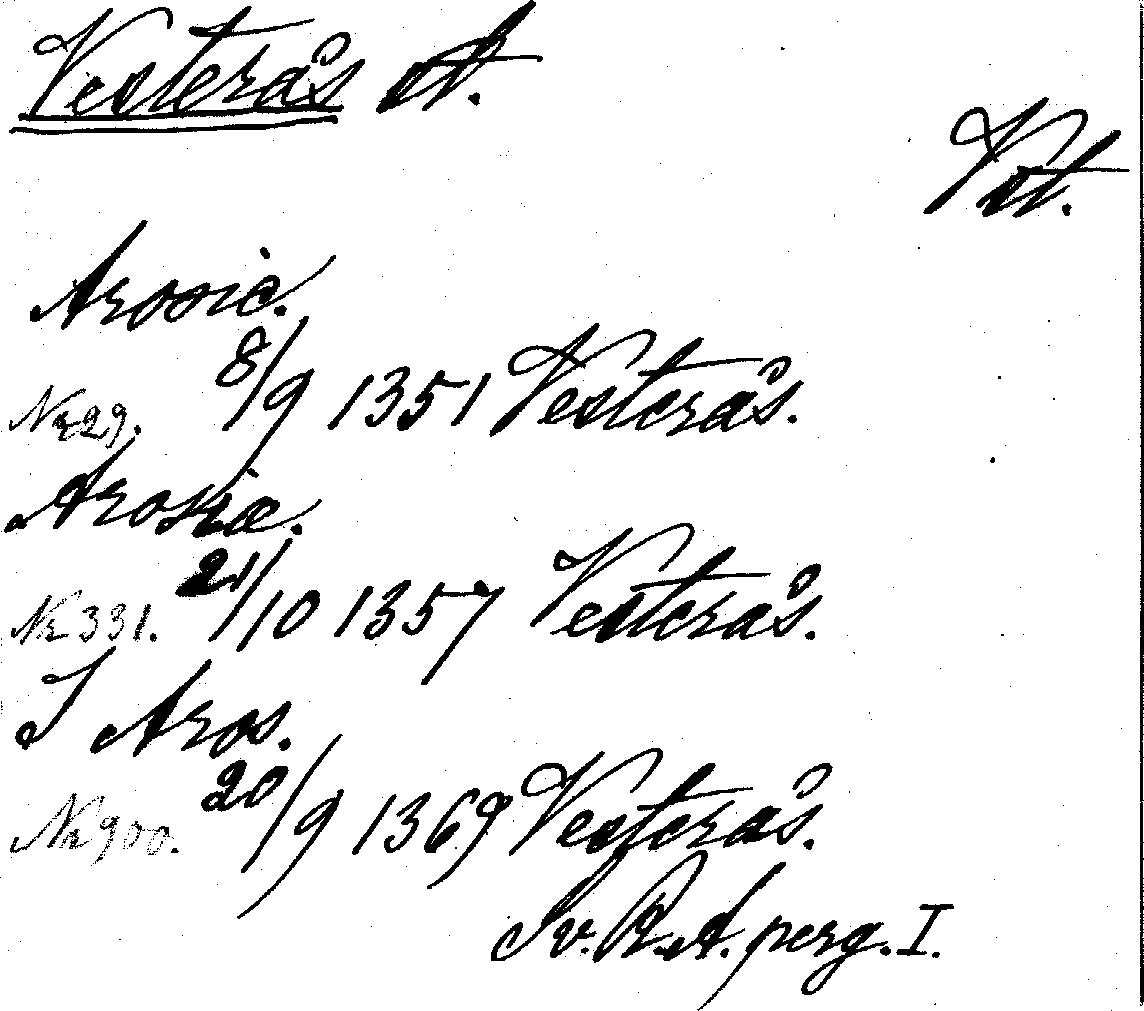 Vesterås st.
Vst.
Arosie.
Nr 29. 8/9 1351 Vesterås.
Arosie.
Nr 331. 21/10 1357 Vesterås.
I Aros.
Nr 900. 20/9 1369 Vesterås.
Sv. R. A. perg. I.